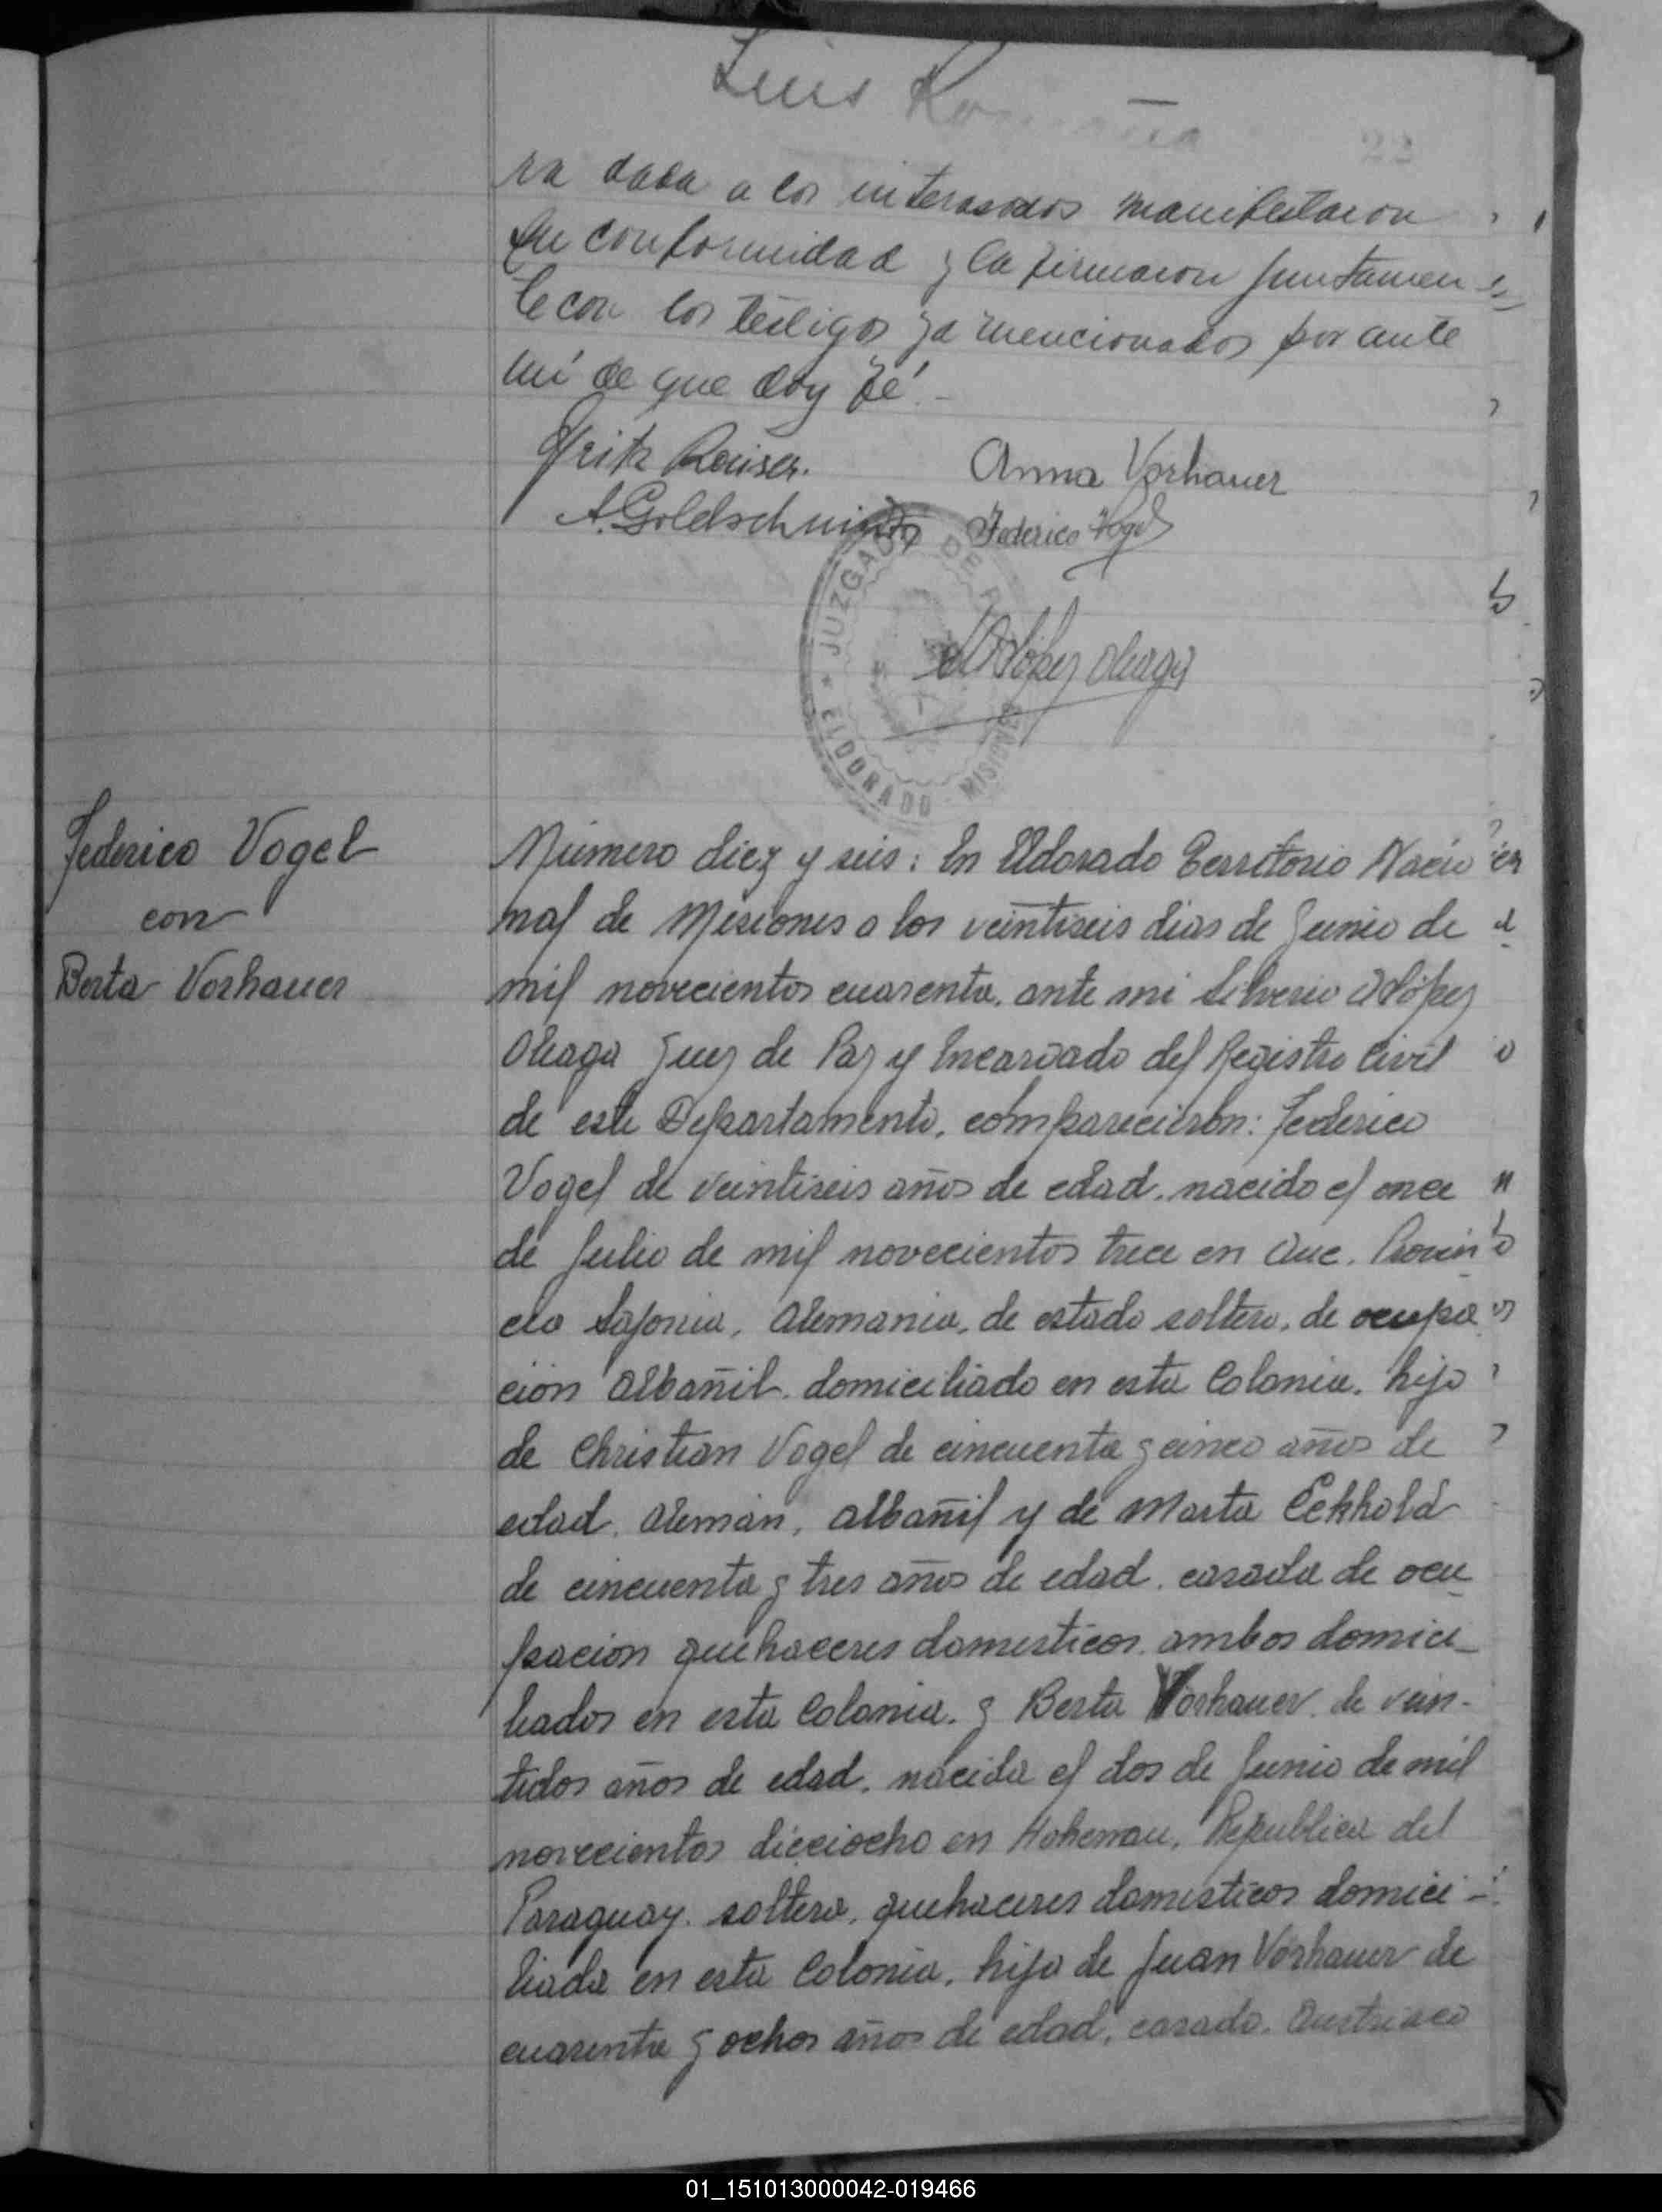 Luis
22
ra dada a los interasados manifestaron
su conformidad y la firmaron juntamen
te con los testigos ya mencionados por ante
mí de que doy fé.-
Fritz Reuser. Anna Vorhauer
A. Goldschmidt Federico Vogel
JUZGADO DE P
López Oleaga
* ELDORADO - MISIONES
Federico Vogel
con
Berta Vorhauer
Número diez y seis: En Eldorado Territorio Nacio
nal de Misiones a los veintiseis dias de Junio de
mil novecientos cuarenta, ante mi Silverio López
Oleaga Juez de Paz y Encargado del Registro Civil
de este Departamento, comparecieron: Federico
Vogel de veintiseis años de edad, nacido el once
de Julio de mil novecientos trece en Aue, Provin
cia Sajonia, Alemania, de estado soltero, de ocupa
ción albañil domiciliado en esta Colonia, hijo
de Christian Vogel de cincuenta y cinco años de
edad, Alemán, albañil y de Marta Eckhold
de cincuenta y tres años de edad, casada de ocu
pación quehaceres domesticos, ambos domici-
liados en esta Colonia. y Berta Vorhauer, de vein-
tidos años de edad, nacida el dos de Junio de mil
novecientos dieciocho en Hohenau, Republica del
Paraguay, soltera, quehaceres domesticos domici-
liada en esta Colonia, hija de Juan Vorhauer de
cuarenta y ochos años de edad, casado, Austriaco
01_151013000042-019466